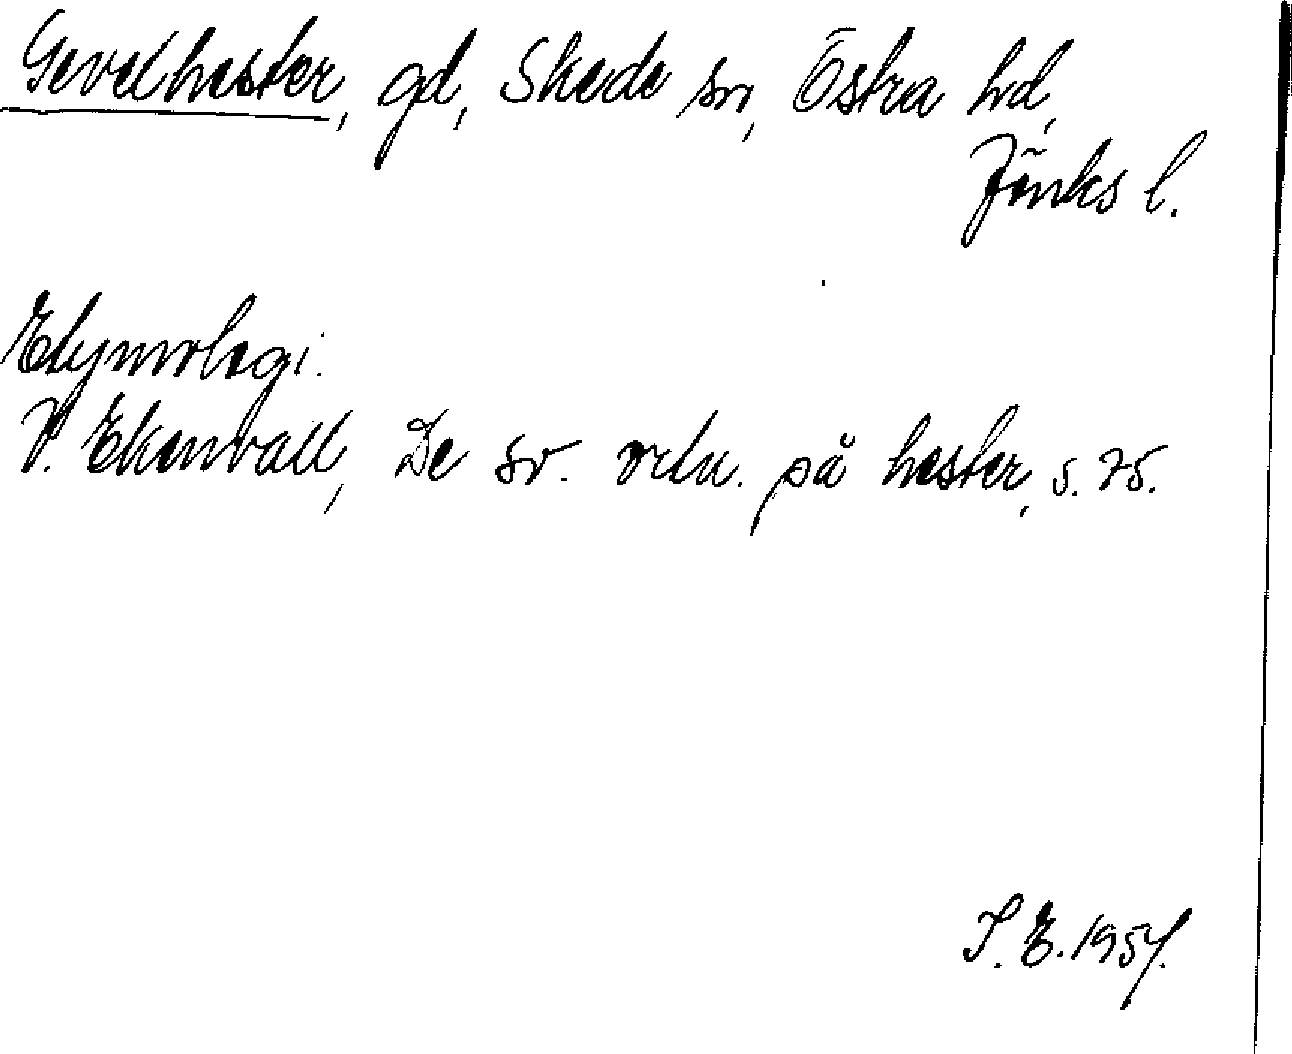 Gevelhester, gd, Skede sn, Östra hd,
Jönks l.
Etymologi.
V. Ekenvall, De sv. ortn. på hester, s. 75.
S. E. 1954.